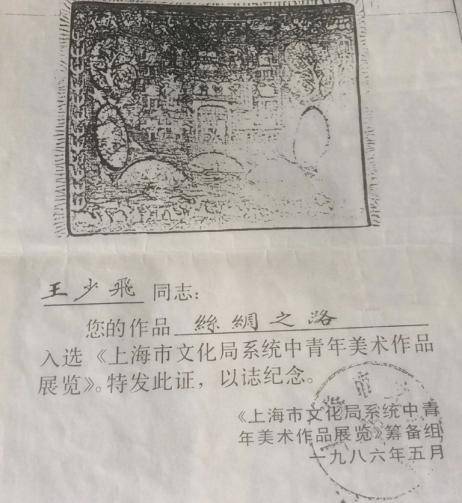 王少飛 同志：
您的作品 絲綢之路
入选《上海市文化局系统中青年美术作品
展览》。特发此证，以誌纪念。
《上海市文化局系统中青
年美术作品展览》筹备组
一九八六年五月